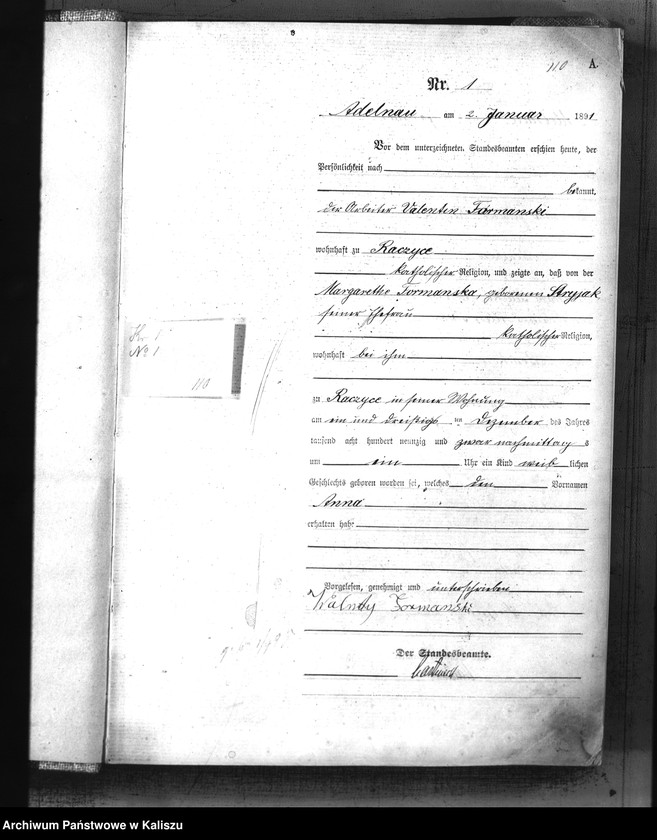 110 A.
Nr. 1
Adelnau am 2. Januar 1891
Vor dem unterzeichneten Standesbeamten erschien heute, der
Persönlichkeit nach
bekannt,
der Arbeiter Valentin Formanski
wohnhaft zu Raczyce
katholischer Religion, und zeigte an, daß von der
Margarethe Formanska, geborenen Stryjak
seiner Ehefrau
katholischer Religion,
wohnhaft bei ihm
zu Raczyce in seiner Wohnung
am ein und dreißigs ten Dezember des Jahres
tausend acht hundert neunzig und zwar nachmittag s
um ein Uhr ein Kind weib lichen
Geschlechts geboren worden sei, welches den Vornamen
Anna
erhalten habe
Vorgelesen, genehmigt und unterschrieben
Formanski
Der Standesbeamte.
No 1
110
Archiwum Państwowe w Kaliszu